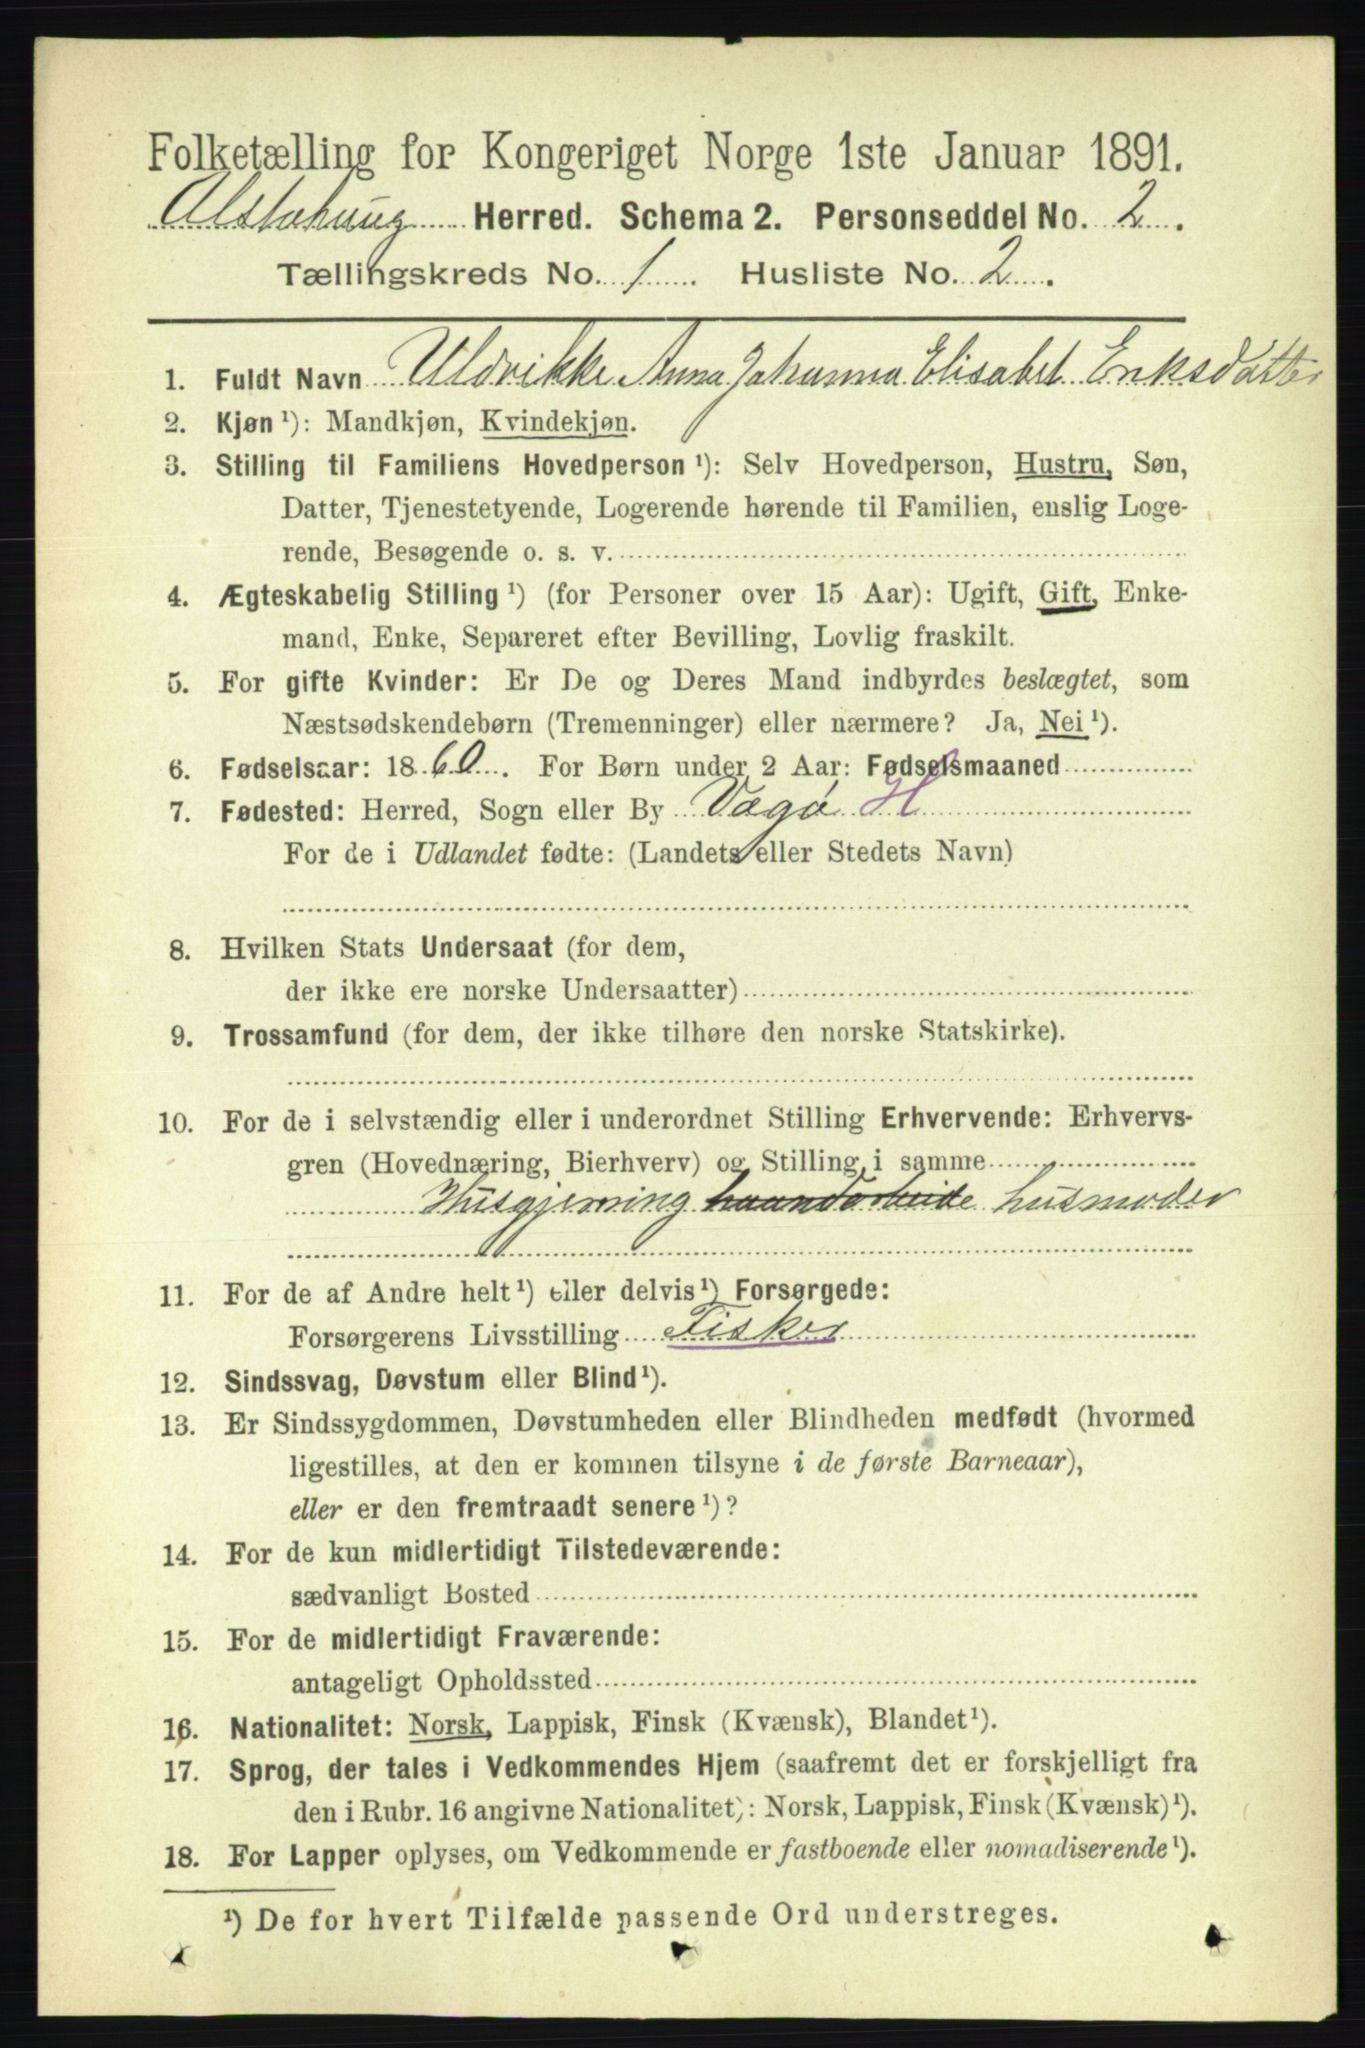 Folketælling for Kongeriget Norge 1ste Januar 1891.
Alstahaug Herred. Schema 2. Personseddel No. 2.
Tællingskreds No. 1 Husliste No. 2.
1. Fuldt Navn Uldrikke Anna Johanna Elisabet Eriksdatter
2. Kjøn ¹): Mandkjøn, Kvindekjøn.
3. Stilling til Familiens Hovedperson ¹): Selv Hovedperson, Hustru, Søn,
Datter, Tjenestetyende, Logerende hørende til Familien, enslig Loge-
rende, Besøgende o. s. v.
4. Ægteskabelig Stilling ¹) (for Personer over 15 Aar): Ugift, Gift, Enke-
mand, Enke, Separeret efter Bevilling, Lovlig fraskilt.
5. For gifte Kvinder: Er De og Deres Mand indbyrdes beslægtet, som
Næstsødskendebørn (Tremenninger) eller nærmere? Ja, Nei ¹).
6. Fødselsaar: 1860. For Børn under 2 Aar: Fødselsmaaned
7. Fødested: Herred, Sogn eller By Vegø H
For de i Udlandet fødte: (Landets eller Stedets Navn)
8. Hvilken Stats Undersaat (for dem,
der ikke ere norske Undersaatter)
9. Trossamfund (for dem, der ikke tilhøre den norske Statskirke).
10. For de i selvstændig eller i underordnet Stilling Erhvervende: Erhvervs-
gren (Hovednæring, Bierhverv) og Stilling i samme
Husgjerning haandarbeide husmoder
11. For de af Andre helt ¹) eller delvis ¹) Forsørgede:
Forsørgerens Livsstilling Fisker
12. Sindssvag, Døvstum eller Blind ¹).
13. Er Sindssygdommen, Døvstumheden eller Blindheden medfødt (hvormed
ligestilles, at den er kommen tilsyne i de første Barneaar),
eller er den fremtraadt senere ¹)?
14. For de kun midlertidigt Tilstedeværende:
sædvanligt Bosted
15. For de midlertidigt Fraværende:
antageligt Opholdssted
16. Nationalitet: Norsk, Lappisk, Finsk (Kvænsk), Blandet ¹).
17. Sprog, der tales i Vedkommendes Hjem (saafremt det er forskjelligt fra
den i Rubr. 16 angivne Nationalitet): Norsk, Lappisk, Finsk (Kvænsk) ¹).
18. For Lapper oplyses, om Vedkommende er fastboende eller nomadiserende ¹).
¹) De for hvert Tilfælde passende Ord understreges.